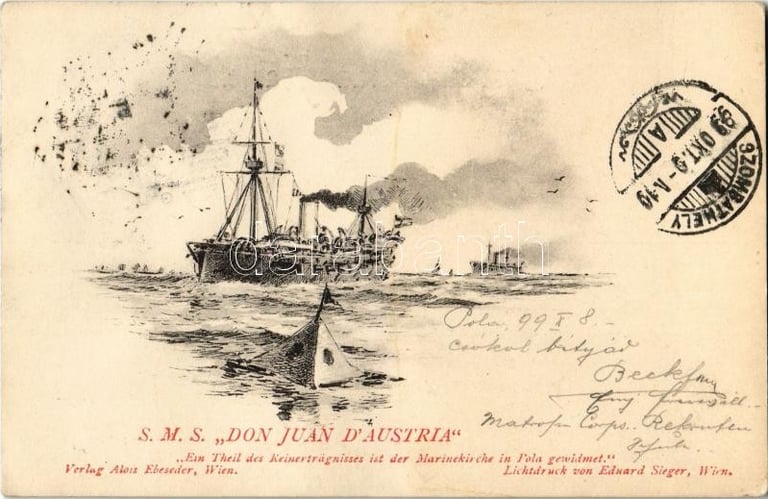 SZOMBATHELY
99 OKT. 9
A
darabanth
Pola, 99 X 8. –
csókol bátyád
Matrosen Corps. Rekruten
Schule.
S. M. S. „DON JUAN D'AUSTRIA“
„Ein Theil des Reinerträgnisses ist der Marinekirche in Pola gewidmet.“
Verlag Alois Ebeseder, Wien. Lichtdruck von Eduard Sieger, Wien.